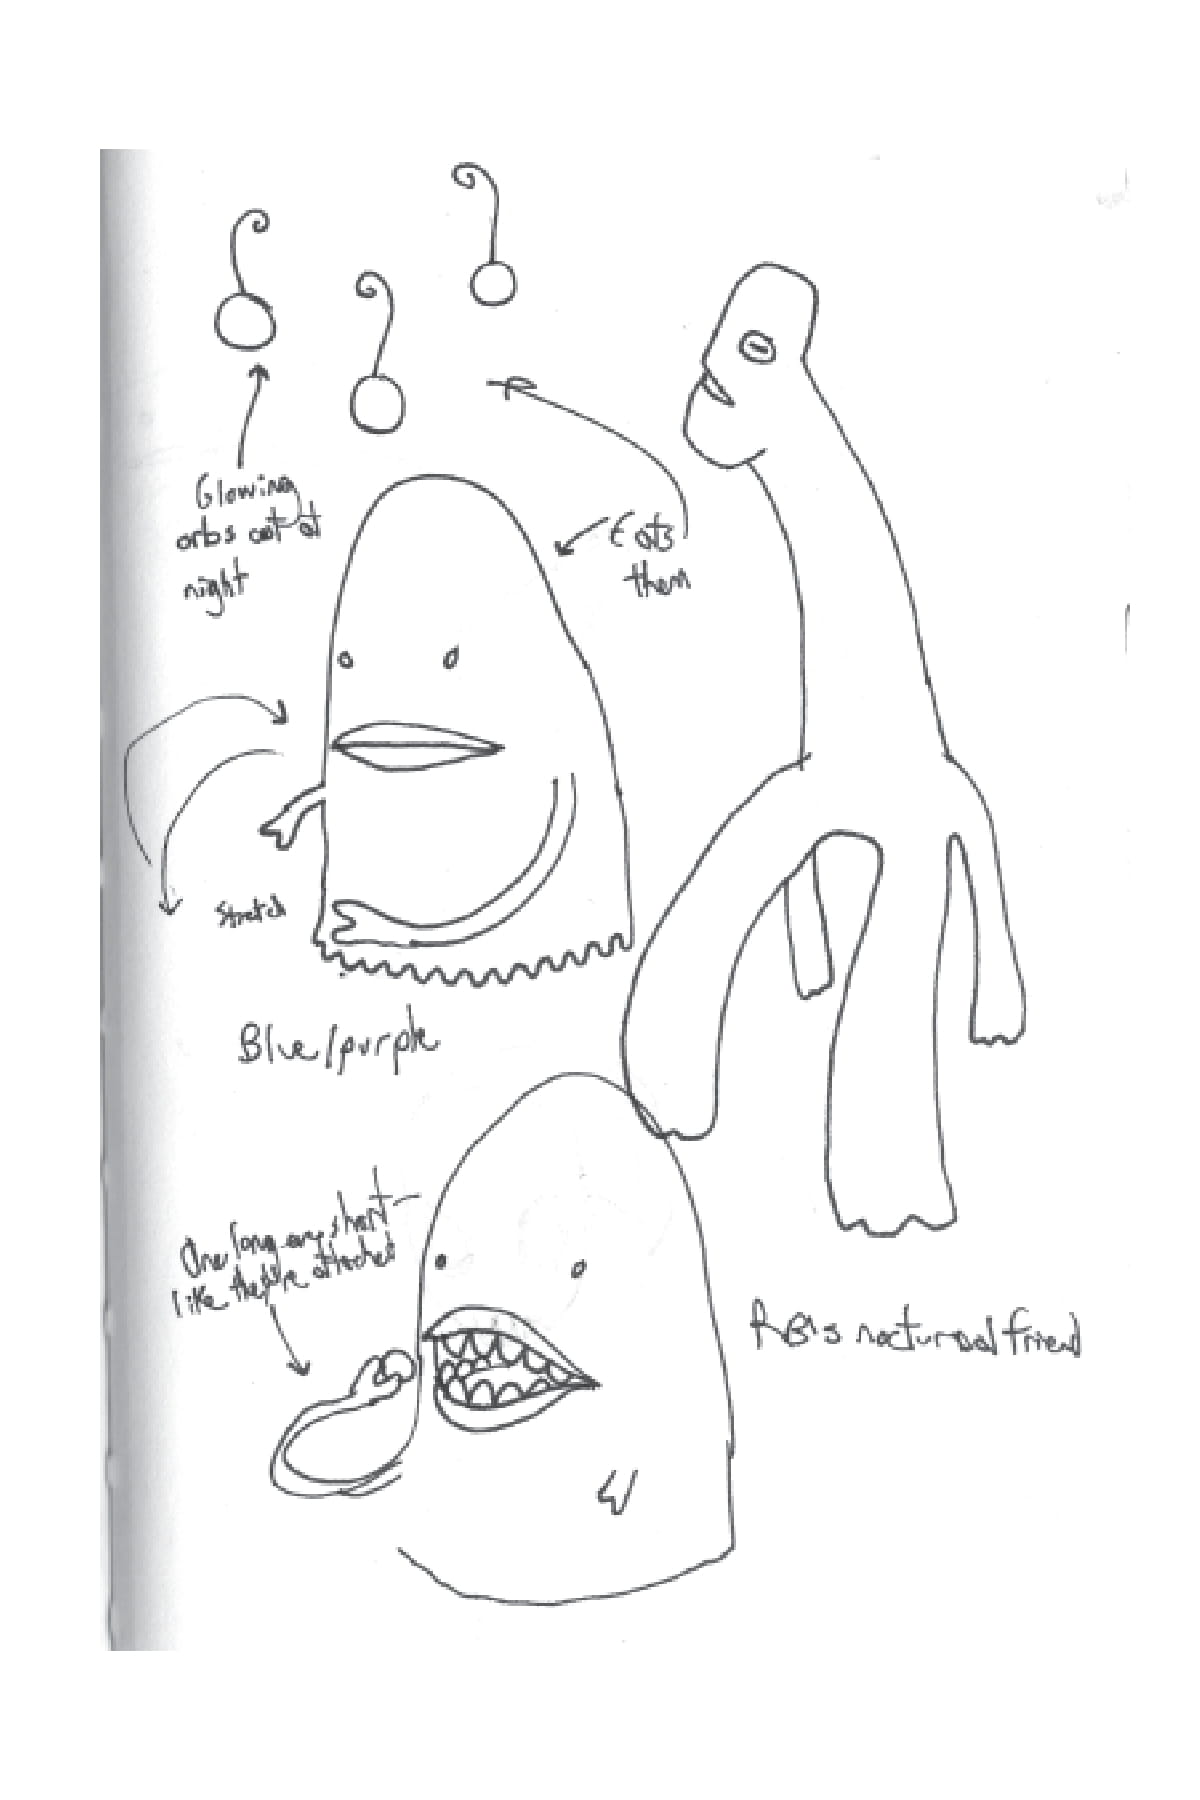 Glowing
orbs out at
night
Eats
them
Stretch
Blue/purple
One long one short
like they're attached
nocturnal friend